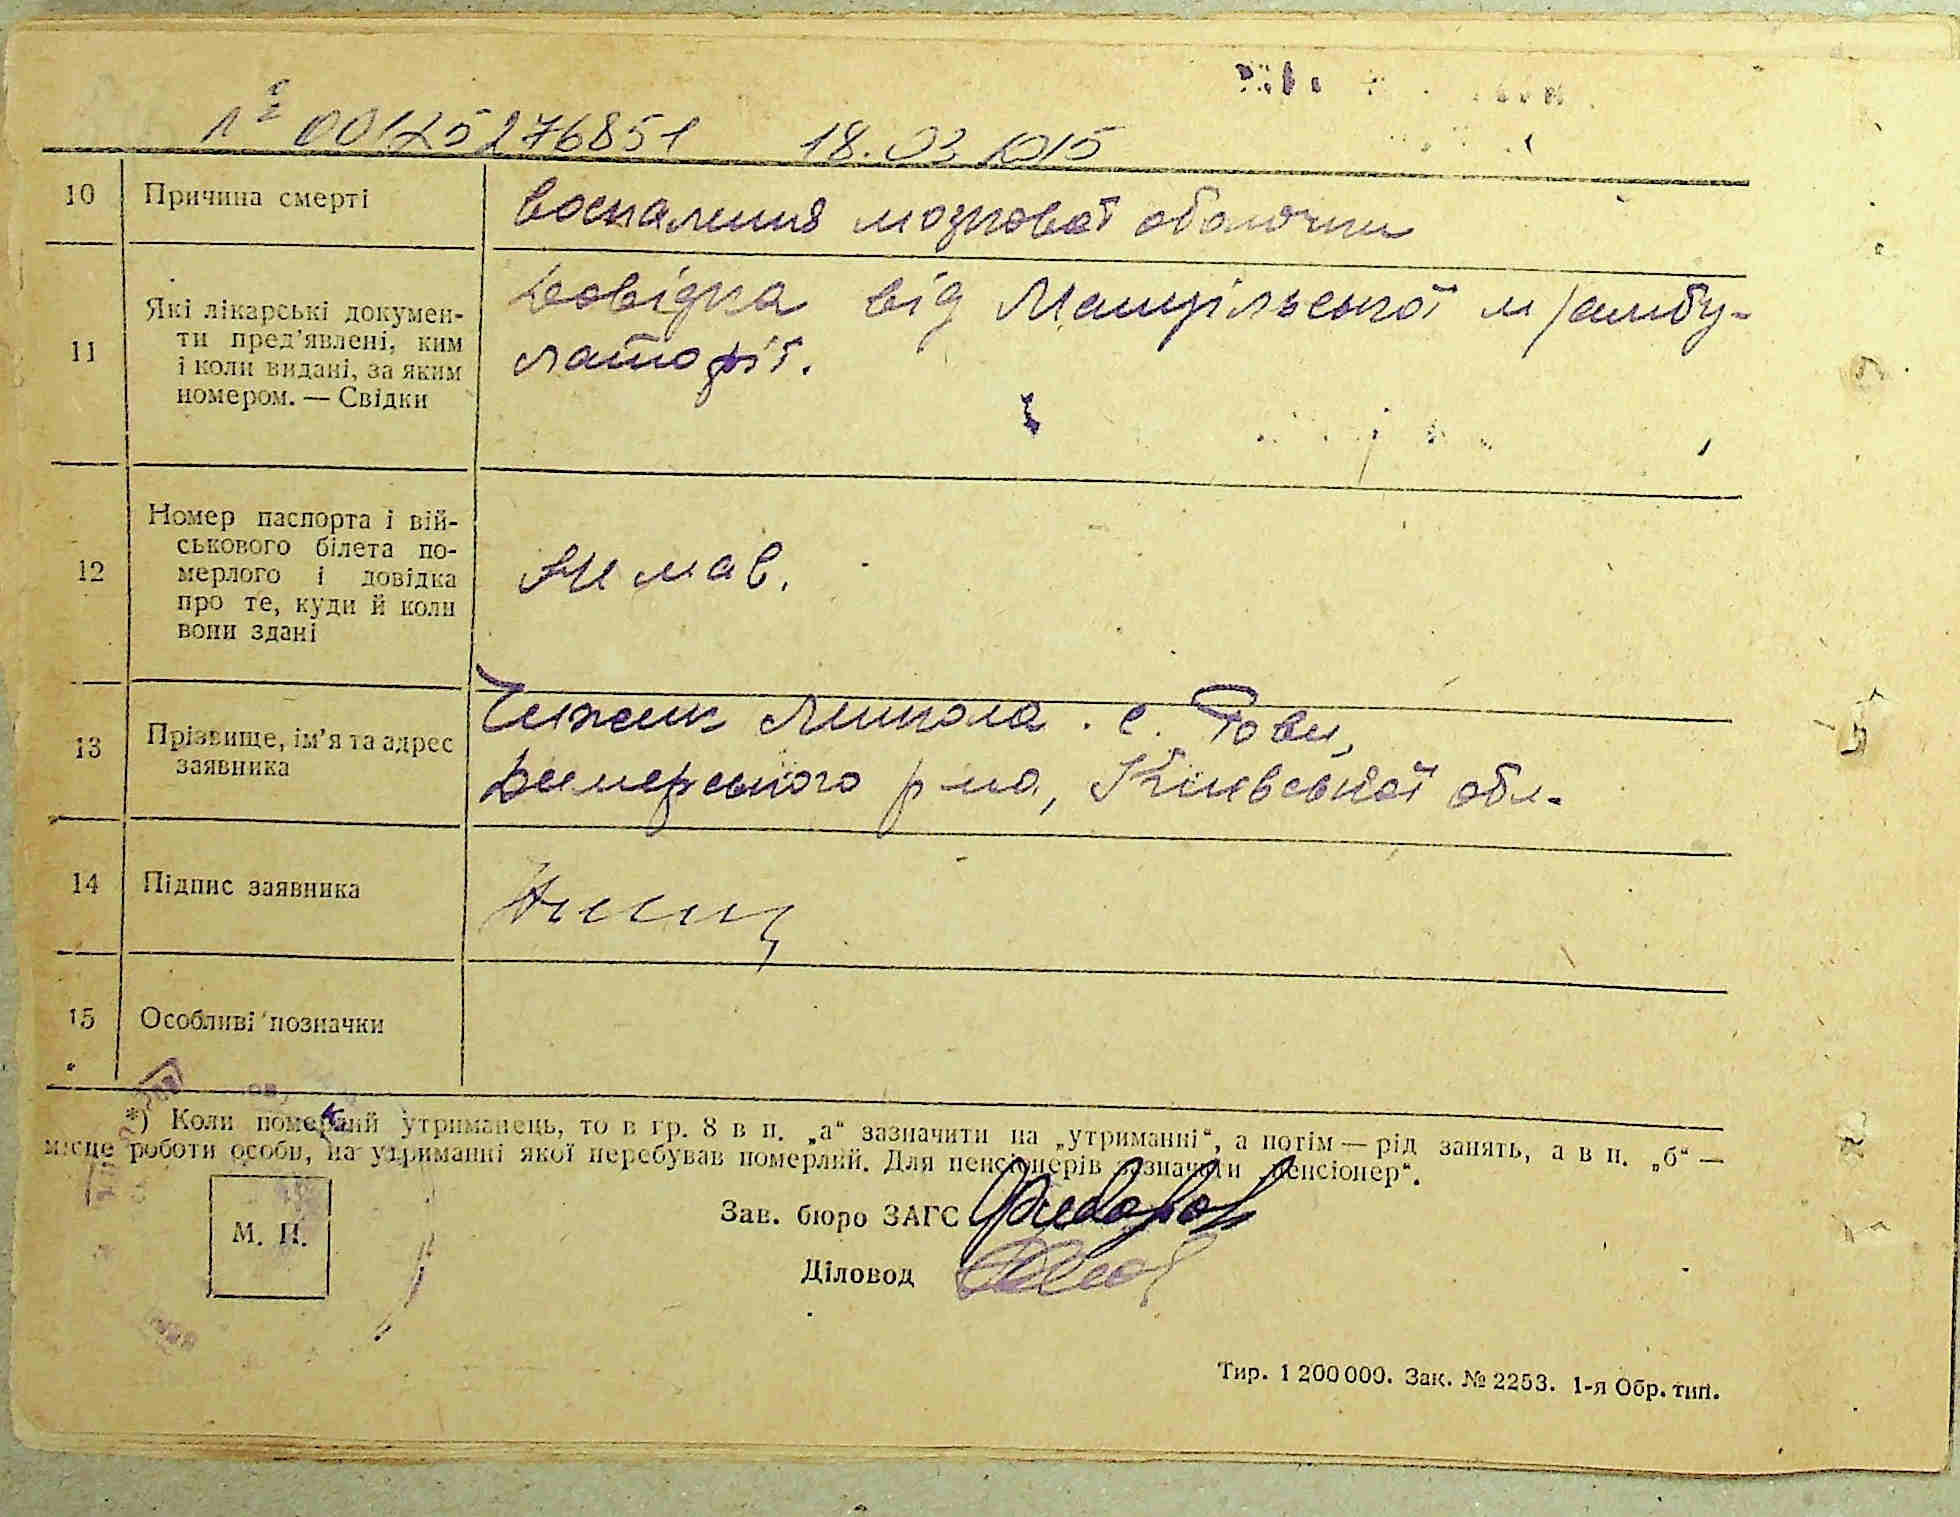 № 00125276851 18.03.2015
10 Причина смерті воспалення мозговоі оболочки
11 Які лікарські докумен-
ти пред’явлені, ким
і коли видані, за яким
номером. — Свідки
Довідка від Мощільської м/амбу-
латоріі.
12 Номер паспорта і вій-
ськового білета по-
мерлого і довідка
про те, куди й коли
вони здані
Не мав.
13 Прізвище, ім’я та адрес
заявника
Чижик Микола. с. Рови,
Димерського р-на, Київської обл.
14 Підпис заявника
15 Особливі позначки
*) Коли померлий утриманець, то в гр. 8 в п. „а“ зазначити на „утриманні“, а потім — рід занять, а в п. „б“ —
місце роботи особи, на утриманні якої перебував померлий. Для пенсіонерів зазначити „пенсіонер“.
М. П.
Зав. бюро ЗАГС
Діловод
Тир. 1 200 000. Зак. № 2253. 1-я Обр. тип.